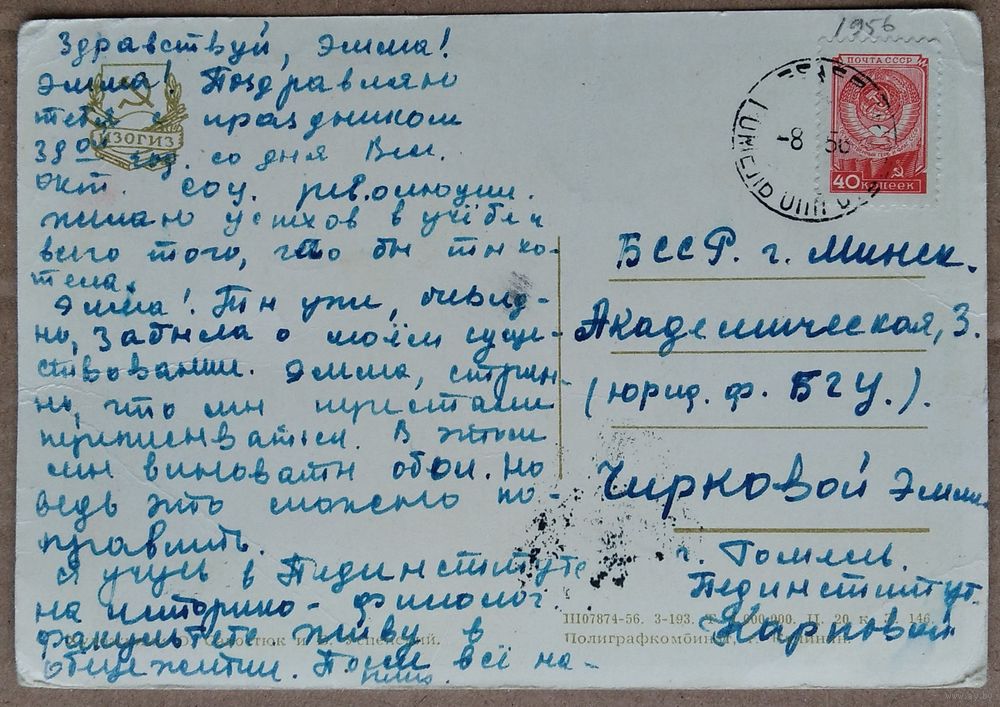 Здравствуй, Эмма!
Эмма! Поздравляю
тебя с праздником
39ой год. со дня Вел.
окт. соц. революции.
желаю успехов в учёбе и
всего того, что бы ты хо-
тела.
Эмма! Ты уже, очевид-
но, забыла о моём суще-
ствовании. Эмма, стран-
но, что мы перестали
переписываться. В этом
мы виноваты обои. Но
ведь это можно по-
править.
Я учусь в Пединституте
на историко-филолог.
факультете живу в
общежитии. Пока всё на-
пиши.
ИЗОГИЗ
1956
ПОЧТА СССР
40 КОПЕЕК
-8 56
БССР. г. Минск.
Академическая, 3.
(юрид. ф. БГУ.).
Чирковой Эмме
г. Гомель.
Пединститут.
Жарковой
Ш07874-56. З-193. 000.000. Ц. 20 к. 146.
Полиграфкомбинат, Калинин.
www.ay.by